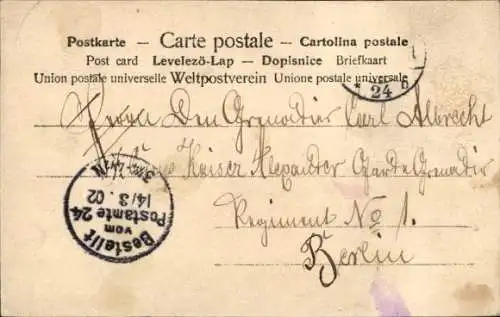 Postkarte – Carte postale – Cartolina postale
Post card – Levelező-Lap – Dopisnice – Briefkaart
Union postale universelle Weltpostverein Unione postale universale
* 24 b
Den Grenadier Carl Albrecht
Kaiser Alexander Garde Grenadier
Regiment No 1.
Berlin
Bestellt
vom
Postamte 24
14/3. 02